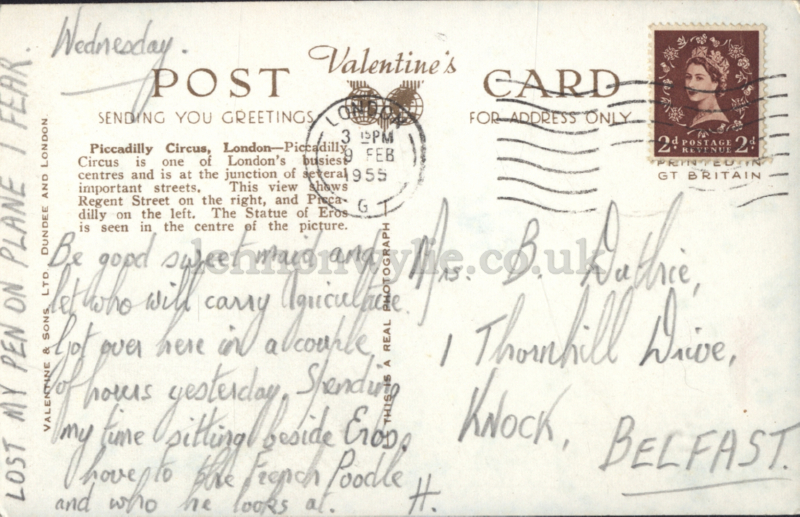 Wednesday.
LOST MY PEN ON PLANE I FEAR.
VALENTINE & SONS, LTD. DUNDEE AND LONDON.
Valentine's
POST CARD
SENDING YOU GREETINGS
FOR ADDRESS ONLY
Piccadilly Circus, London—Piccadilly
Circus is one of London's busiest
centres and is at the junction of several
important streets. This view shows
Regent Street on the right, and Picca-
dilly on the left. The Statue of Eros
is seen in the centre of the picture.
LONDON
3 15 PM
9 FEB
1955
G
2d POSTAGE REVENUE 2d
PRINTED IN
GT BRITAIN
THIS IS A REAL PHOTOGRAPH
lennonwylie.co.uk
Be good sweet maid and
let who will carry Agriculture.
Got over here in a couple
of hours yesterday. Spending
my time sitting beside Eros.
to the French Poodle
and who he looks at. H.
Mrs. B. Duthie,
1 Thornhill Drive,
KNOCK,
BELFAST.